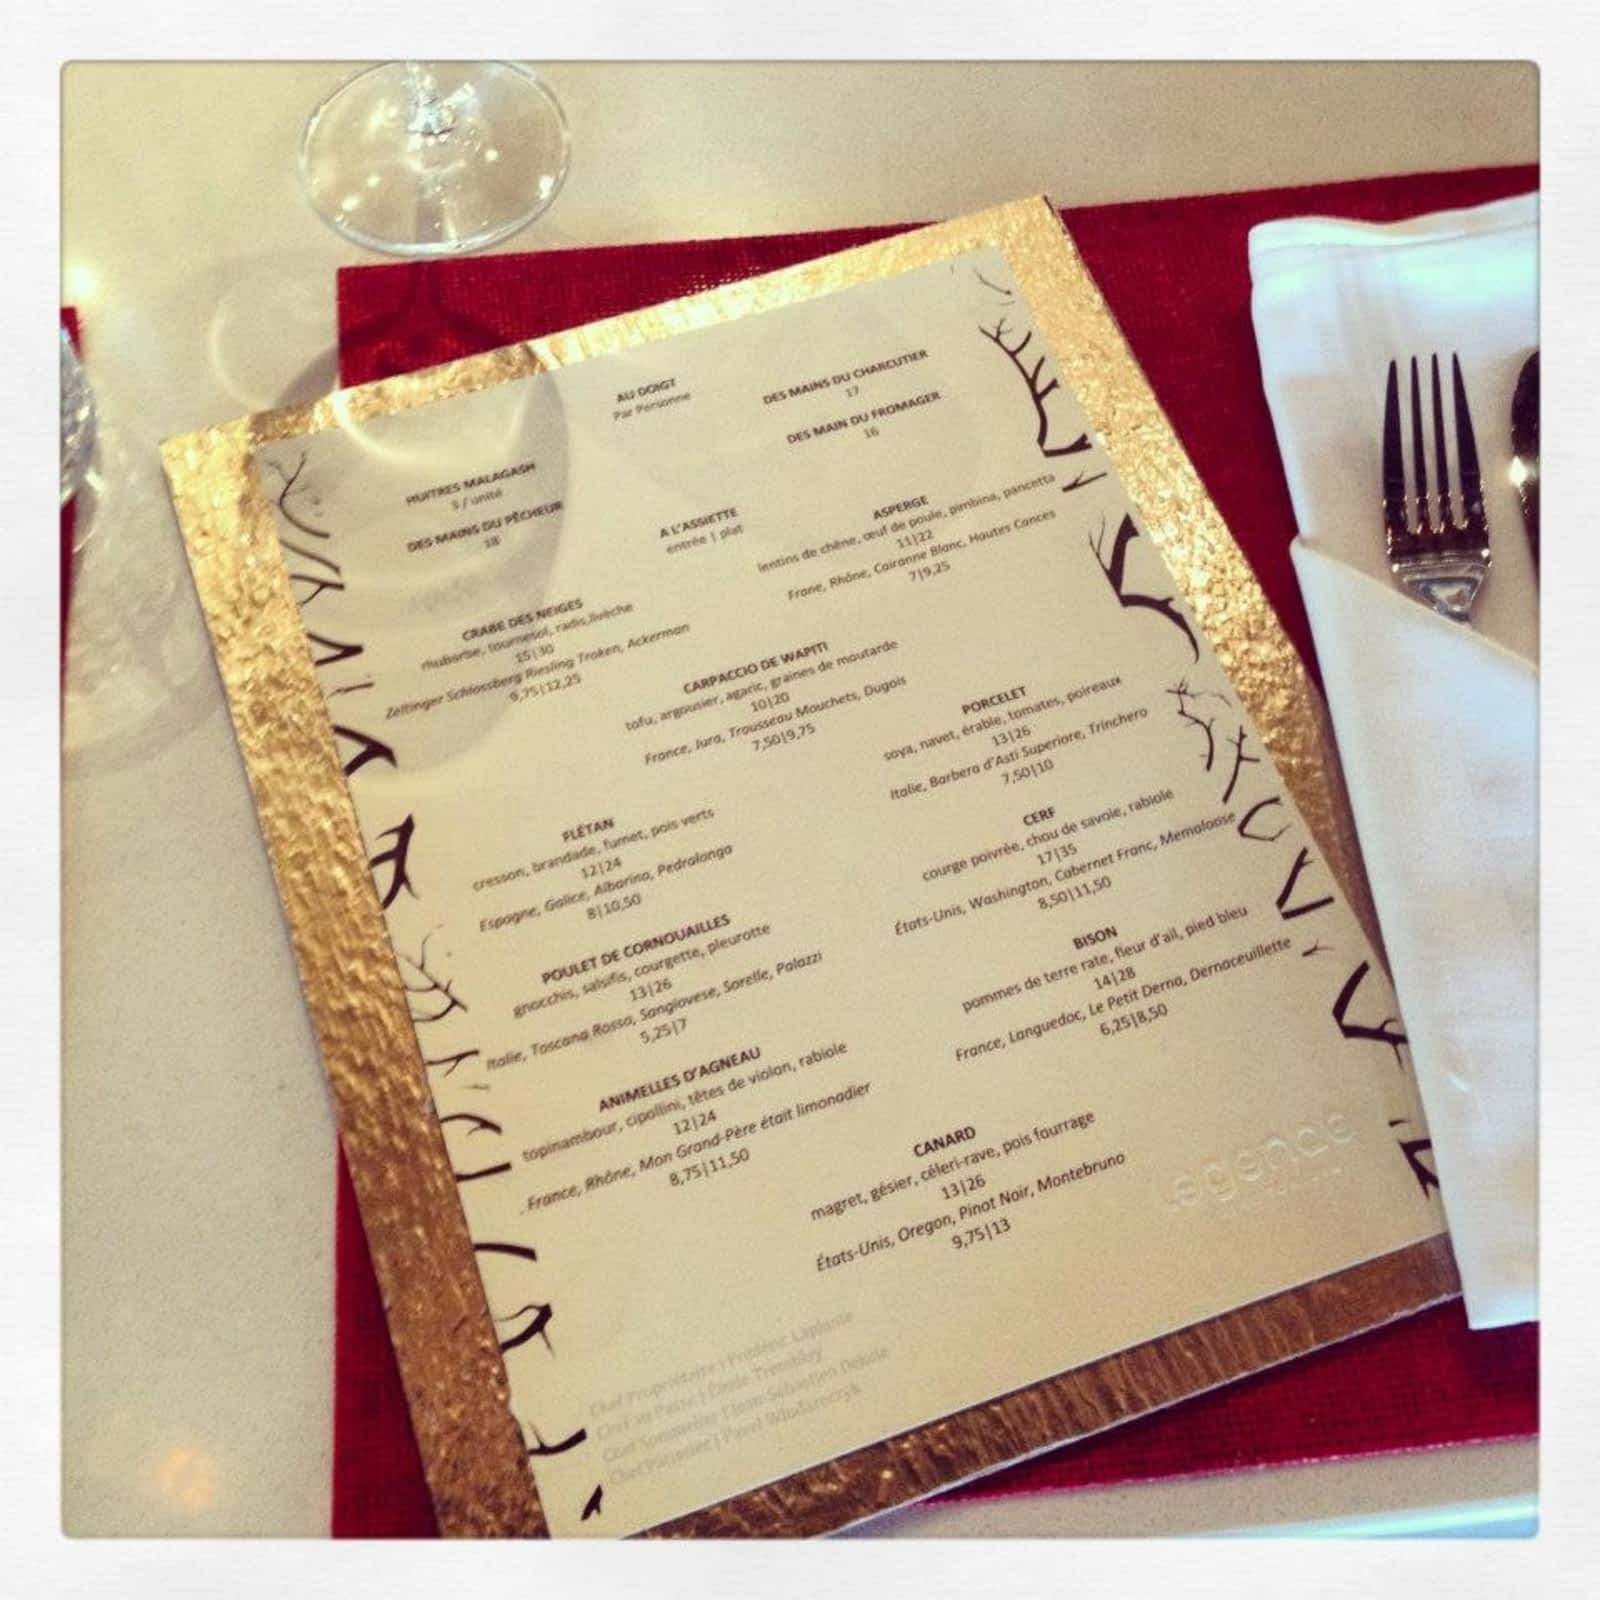 AU DOIGT
Par Personne
HUITRES MALAGASH
3 / unité
DES MAINS DU PÊCHEUR
18
DES MAINS DU CHARCUTIER
17
DES MAIN DU FROMAGER
16
A L'ASSIETTE
entrée | plat
CRABE DES NEIGES
rhubarbe, tournesol, radis,livèche
15|30
Zeltinger Schlossberg Riesling Troken, Ackerman
9,75|12,25
ASPERGE
lentins de chêne, œuf de poule, pimbina, pancetta
11|22
Frane, Rhône, Cairanne Blanc, Hautes Cances
7|9,25
CARPACCIO DE WAPITI
tofu, argousier, agaric, graines de moutarde
10|20
France, Jura, Trousseau Mouchets, Dugois
7,50|9,75
FLÉTAN
cresson, brandade, fumet, pois verts
12|24
Espagne, Galice, Albarino, Pedralonga
8|10,50
PORCELET
soya, navet, érable, tomates, poireaux
13|26
Italie, Barbera d'Asti Superiore, Trinchero
7,50|10
POULET DE CORNOUAILLES
gnocchis, salsifis, courgette, pleurotte
13|26
Italie, Toscana Rosso, Sangiovese, Sorelle, Palazzi
5,25|7
CERF
courge poivrée, chou de savoie, rabiole
17|35
États-Unis, Washington, Cabernet Franc, Memaloose
8,50|11,50
ANIMELLES D'AGNEAU
topinambour, cipollini, têtes de violon, rabiole
12|24
France, Rhône, Mon Grand-Père était limonadier
8,75|11,50
BISON
pommes de terre rate, fleur d'ail, pied bleu
14|28
France, Languedoc, Le Petit Derna, Dernaceuillette
6,25|8,50
CANARD
magret, gésier, céleri-rave, pois fourrage
13|26
États-Unis, Oregon, Pinot Noir, Montebruno
9,75|13
légende
Chef Propriétaire | Frédéric Laplante
Chef au Passe | Émile Tremblay
Chef Sommelier | Jean-Sébastien Delisle
Chef Pâtissier | Pawel